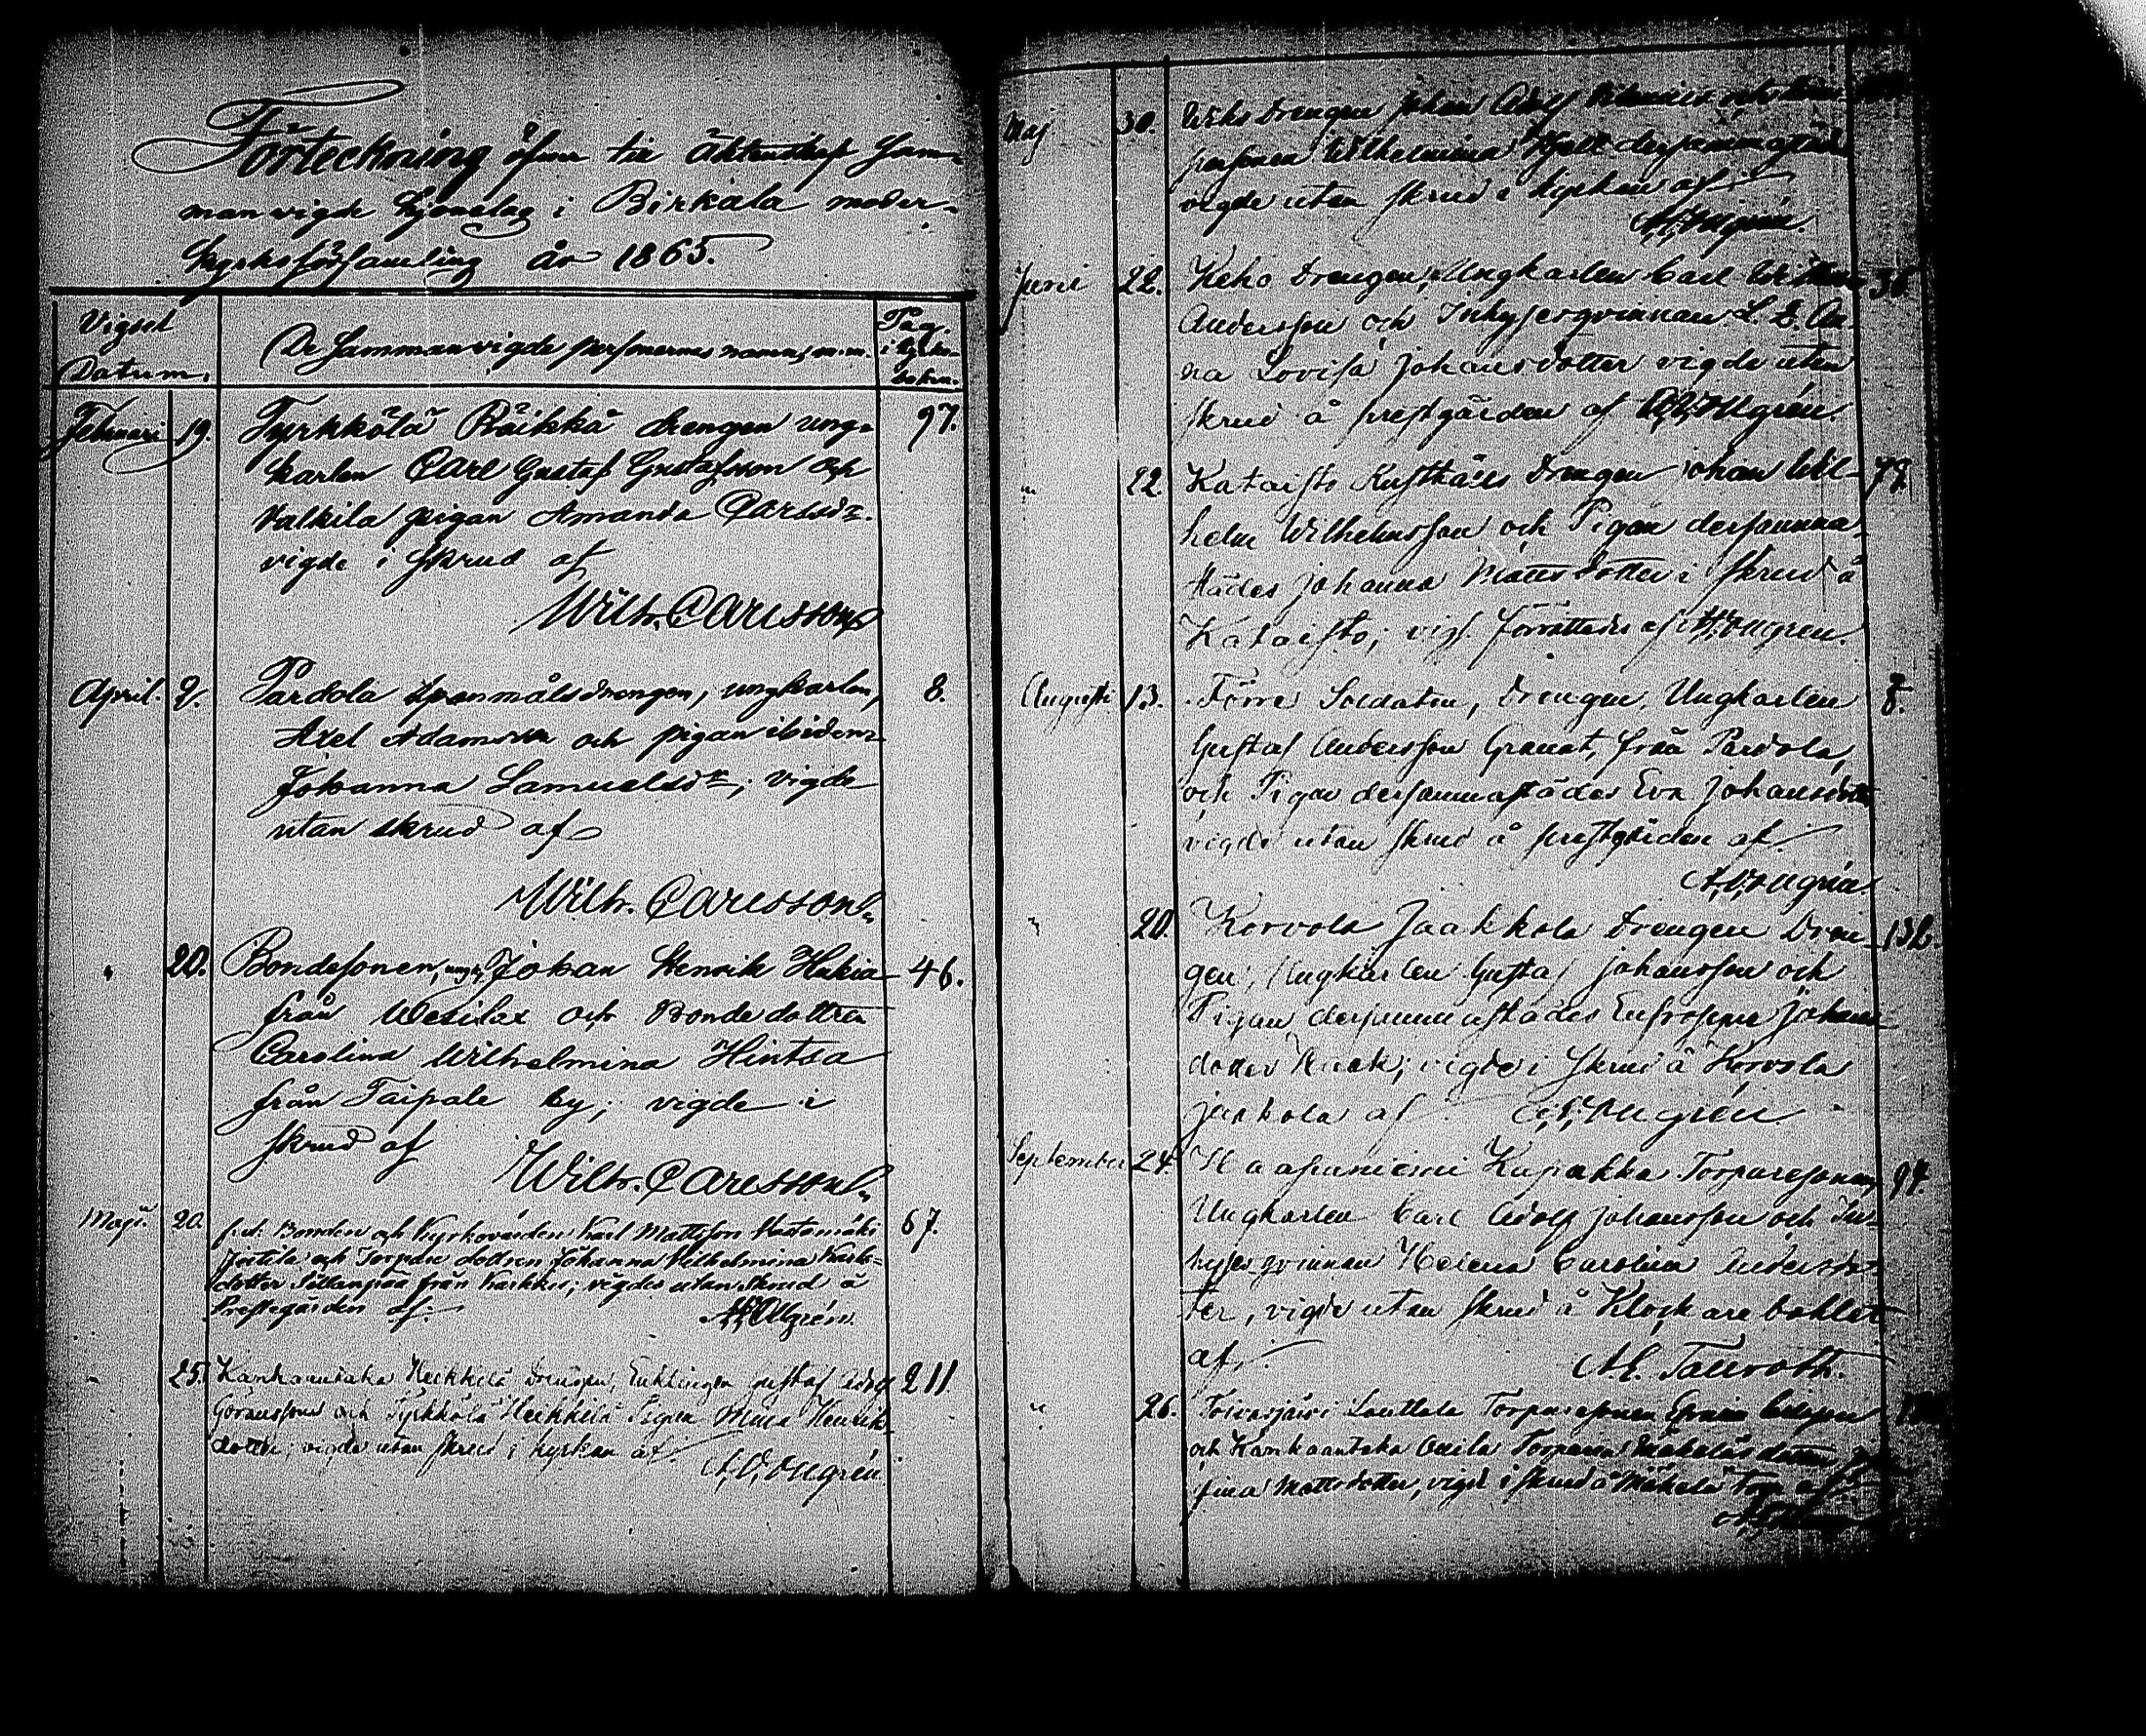 Förteckning öfver til Äktenskap Sam-
manvigde Hjonelag i Birkala moder-
kyrkoförsamling År 1865.
Vigsel
Datum.
De Sammanvigde personernes namn, m.m.
Pag.
i kyrko-
boken.
Februari 19. Tyrkkölä Räikkä drengen ung- 97.
karlen Carl Gustaf Gustafsson och
Valkila pigan Amanda Carlsdr.
vigde i skrud af
Wilh. Carlsson
April. 9. Pardola Spanmålsdrengen, ungkarlen, 8.
Axel Adamsson och pigan ibidem
Johanna Samuelsdr; vigde
utan skrud af
Wilh. Carlsson
" 20. Bondesonen, ungk. Johan Henrik 46.
från Wesilax och Bondedottren
Carolina Wilhelmina Hintsa
från Taipale by; vigde i
skrud af
Wilh. Carlsson
Maji. 20. Bonden och Kyrkovärden Karl Mattsson 67.
och Torpare dottren Johanna Vilhelmina Karls-
dotter från Karkku; vigdes utan skrud å
Prestgården af.
25. Kankaantaka Heikkilä Drengen, Enklingen Gustaf Adolf 211
Göransson och Tyrkkölä Heikkilä Pigan Maria Henriks-
dotter; vigde utan skrud i kyrkan af
Maj 30. Drengen Johan Adolf
personen Wilhelmina dersammastäds
vigde utan skrud i kyrkan af
Juni 22. Keho Drengen, Ungkarlen Carl 36
Andersson och Inhysesqvinnan L. E. An-
na Lovisa Johansdotter vigde utan
skrud å prestgården af
" 22. Kataisto Rusthålls Drengen Johan Wil-
helm Wilhelmsson och Pigan dersamma-
städes Johanna Mattsdotter i skrud å
Kataisto; vigs. förrättades af
Augusti 13. Förre Soldaten, Drengen, Ungkarlen 8.
Gustaf Andersson Granat, från Pardola,
och Pigan dersammastädes Eva Johansdotter
vigde utan skrud å prestgården af.
" 20. Korvola Jaakkola Drengen Dren- 132.
gen, Ungkarlen Gustaf Johansson och
Pigan dersammastädes Johans-
dotter vigde i skrud å Korvola
Jaakola af
September 24. Haapaniemi Torparesonen 94.
Ungkarlen Carl Adolf Johansson och In-
hyses qvinnan Helena Carolina Andersdot-
ter, vigde utan skrud å Klockarebohlet
af.
26. Torparesonen
och Kankaantaka Torparen Mäkeläs dotter
Mattsdotter, vigd i skrud å Mäkelä